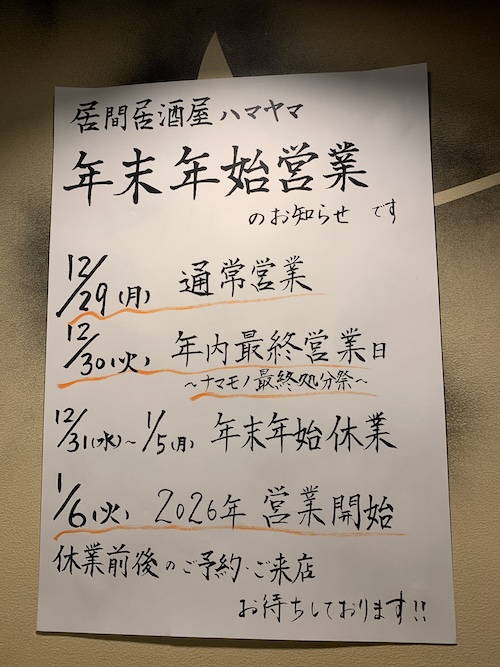 居間居酒屋ハマヤマ
年末年始営業
のお知らせです
12/29(月) 通常営業
12/30(火) 年内最終営業日
~ナマモノ最終処分祭~
12/31(水)~1/5(月) 年末年始休業
1/6(火) 2026年 営業開始
休業前後のご予約・ご来店
お待ちしております!!